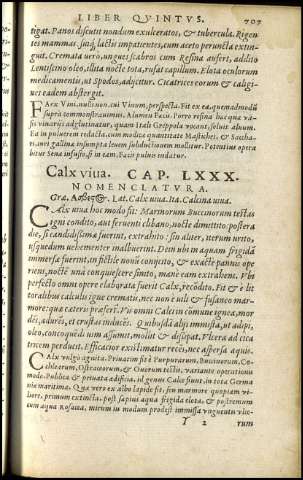 LIBER QVINTVS. 707
tigat. Panos discutit nondum exulceratos, & tubercula. Rigen
tes mammas, suiq́; lactis impatientes, cum aceto peruncta extin
guit. Cremata uero, ungues scabros cum Resina aufert, addito
Lentiscino oleo, illita nocte tota, rufat capillum. Elota oculorum
medicamentis, ut Spodos, adijcitur. Cicatrices eorum & caligi
nes eadem abstergit.
FAex Vini, nullis non, cui Vinum, perspecta. Fit ex ea, quemadmodū
suprà commonstrauimus, Alumen Fæcis. Porro resina hæc, qua
si uinciri adglutinatur, quam Itali Greppola uocant, soluit aluum.
Ea in puluerem redacta, cum modica quantitate Mastiches, & Sacchari
, iuri gallinæ insumpta leuem subductionem molitur. Potentius opera
bitur Sena infuso, si in eam Fæcis puluis indatur.
Calx viua. CAP. LXXX.
NOMENCLATVRA.
Græ. Ἄσβεστος. Lat. Calx uiua. Ita. Calcina uiua.
CAlx uiua hoc modo fit: Marinorum Buccinorum testas
igni condito, aut feruenti clibano, nocte dimittito. postera
die, si candidissimæ fuerint, extrahito: sin aliter, iterum urito,
usquedum uehementer inalbuerint. Dein ubi in aquam frigidā
immersæ fuerint, in fictile nouū conijcito, & exactè pannis ope
riens, noctē unā conquiescere sinito, manè eam extrahens. Vbi
perfecto omni opere elaborata fuerit Calx, recōdito. Fit & è lit
toralibus calculis igne crematis, nec non è uili & fusaneo mar-
more: quæ cæteris præfert. Vis omni Calci in cōmune ignea, mor
dēs, adurēs, et crustas inducēs. Quibusdā alijs immistæ, ut adipi,
oleo, concoquēdi uim assumit, mollit & dissipat. Vlcera ad cica
tricem perducit. Efficacior existimatur recēs, nec aspersa aquis.
CAlx vulgò cognita. Priuatim fit è Purpurarum, Buccinorum, Co-
chlearum, Ostreacorum, & Ouorum testis, uariante operationis
modo. Publica & priuata ædificia, id genus Calcis sunt, in tota Germa
nia maritima. Quæ vero ex albo lapide fit, seu marmore quopiam vi-
bere, primum extincta, post sæpius aqua frigida elota, & postremum
cum aqua rosacea, mirum in modum prodest immista vnguentis vlce-
Y 2 rum